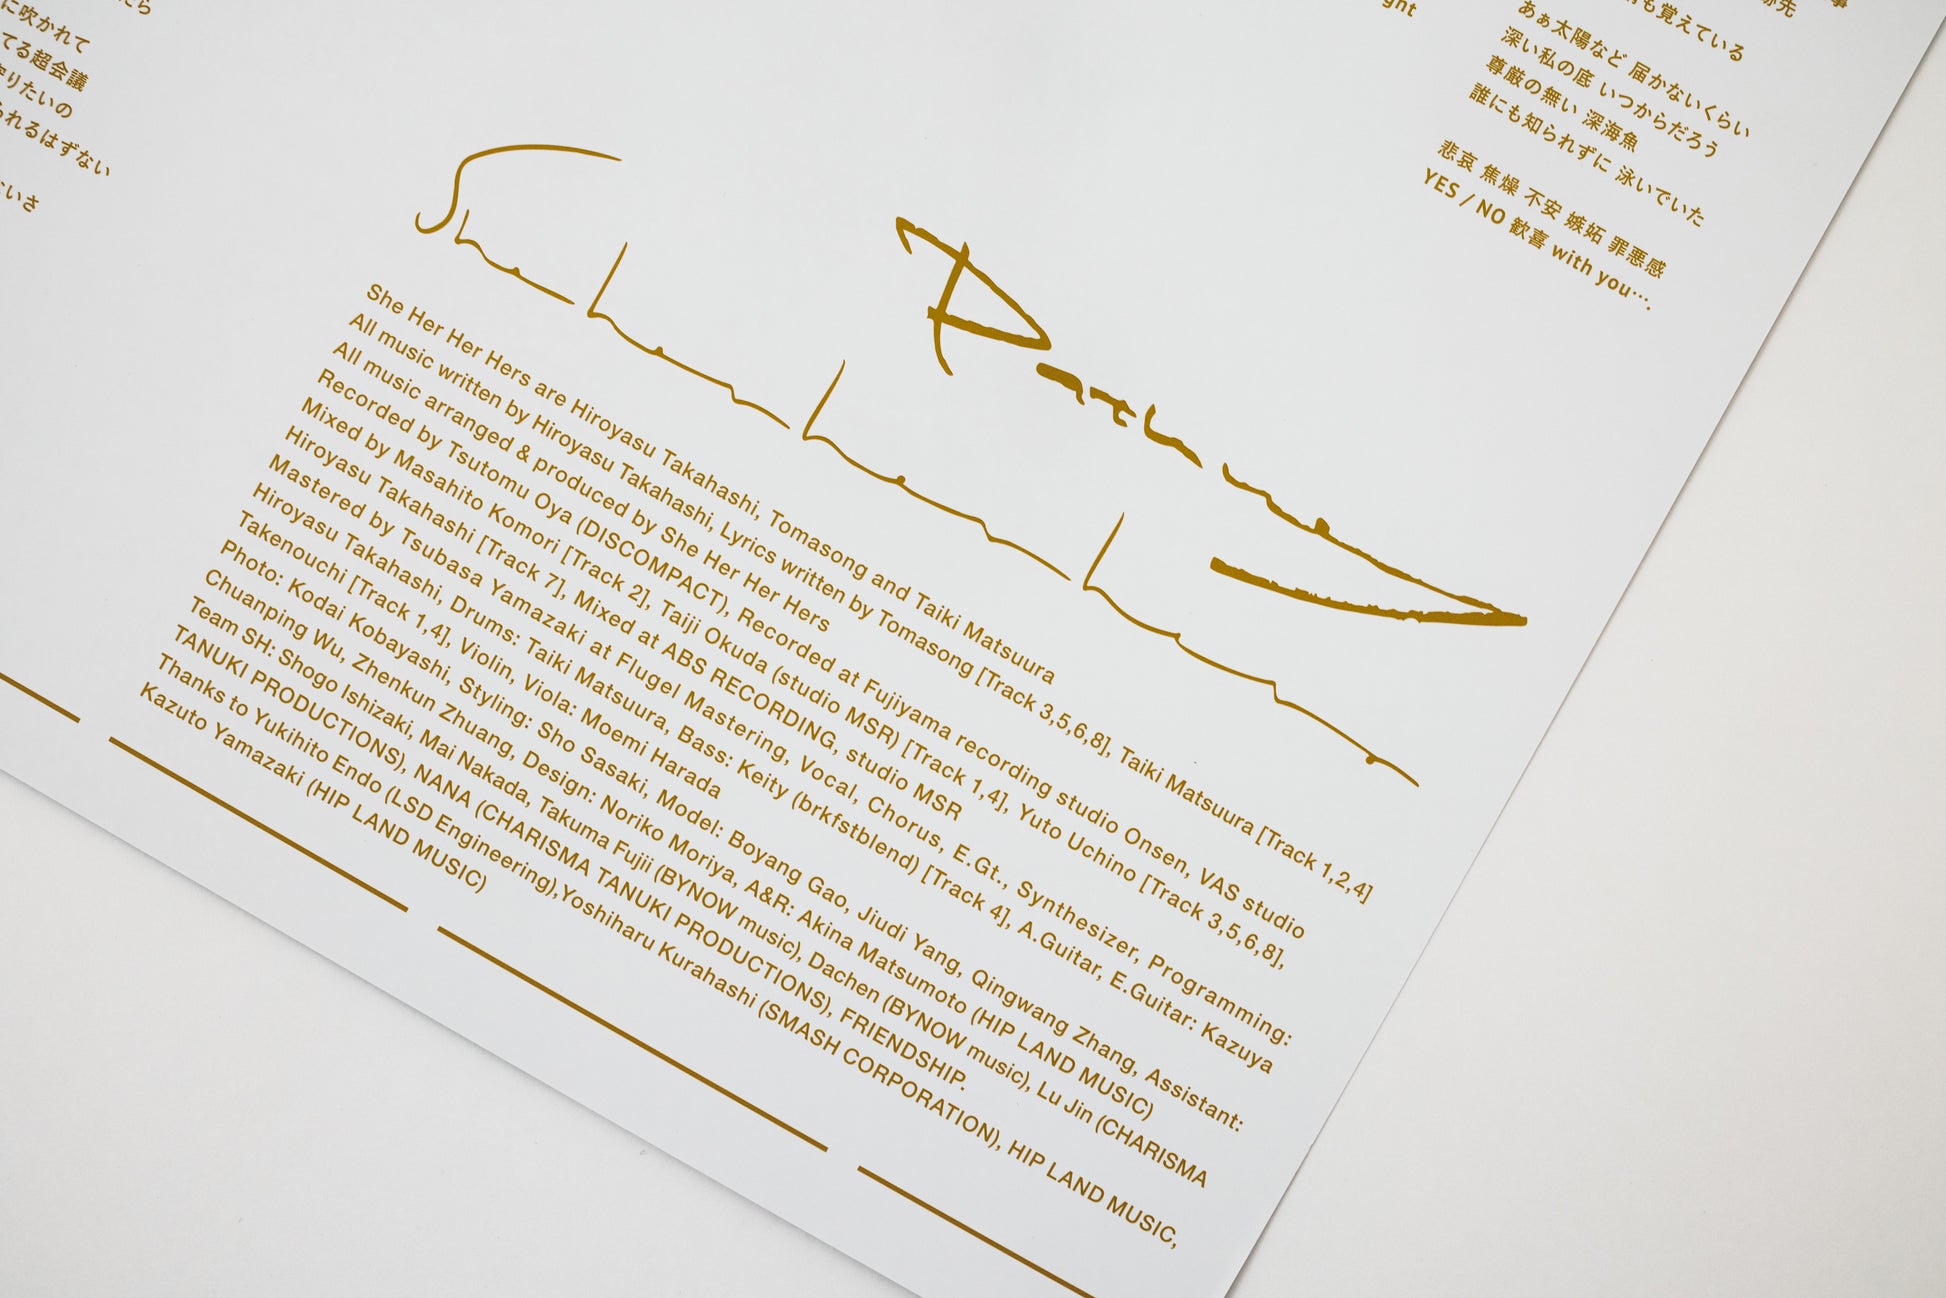 に吹かれて
てる超会議
守りたいの
られるはずない
ないさ
ght
も覚えている
あぁ太陽など 届かないくらい
深い私の底 いつからだろう
尊厳の無い 深海魚
誰にも知られずに 泳いでいた
悲哀 焦燥 不安 嫉妬 罪悪感
YES / NO 歓喜 with you….
She Her Her Hers are Hiroyasu Takahashi, Tomasong and Taiki Matsuura
All music written by Hiroyasu Takahashi, Lyrics written by Tomasong [Track 3,5,6,8], Taiki Matsuura [Track 1,2,4]
All music arranged & produced by She Her Her Hers
Recorded by Tsutomu Oya (DISCOMPACT), Recorded at Fujiyama recording studio Onsen, VAS studio
Mixed by Masahito Komori [Track 2], Taiji Okuda (studio MSR) [Track 1,4], Yuto Uchino [Track 3,5,6,8],
Hiroyasu Takahashi [Track 7], Mixed at ABS RECORDING, studio MSR
Mastered by Tsubasa Yamazaki at Flugel Mastering, Vocal, Chorus, E.Gt., Synthesizer, Programming:
Hiroyasu Takahashi, Drums: Taiki Matsuura, Bass: Keity (brkfstblend) [Track 4], A.Guitar, E.Guitar: Kazuya
Takenouchi [Track 1,4], Violin, Viola: Moemi Harada
Photo: Kodai Kobayashi, Styling: Sho Sasaki, Model: Boyang Gao, Jiudi Yang, Qingwang Zhang, Assistant:
Chuanping Wu, Zhenkun Zhuang, Design: Noriko Moriya, A&R: Akina Matsumoto (HIP LAND MUSIC)
Team SH: Shogo Ishizaki, Mai Nakada, Takuma Fujii (BYNOW music), Dachen (BYNOW music), Lu Jin (CHARISMA
TANUKI PRODUCTIONS), NANA (CHARISMA TANUKI PRODUCTIONS), FRIENDSHIP.
Thanks to Yukihito Endo (LSD Engineering),Yoshiharu Kurahashi (SMASH CORPORATION), HIP LAND MUSIC,
Kazuto Yamazaki (HIP LAND MUSIC)